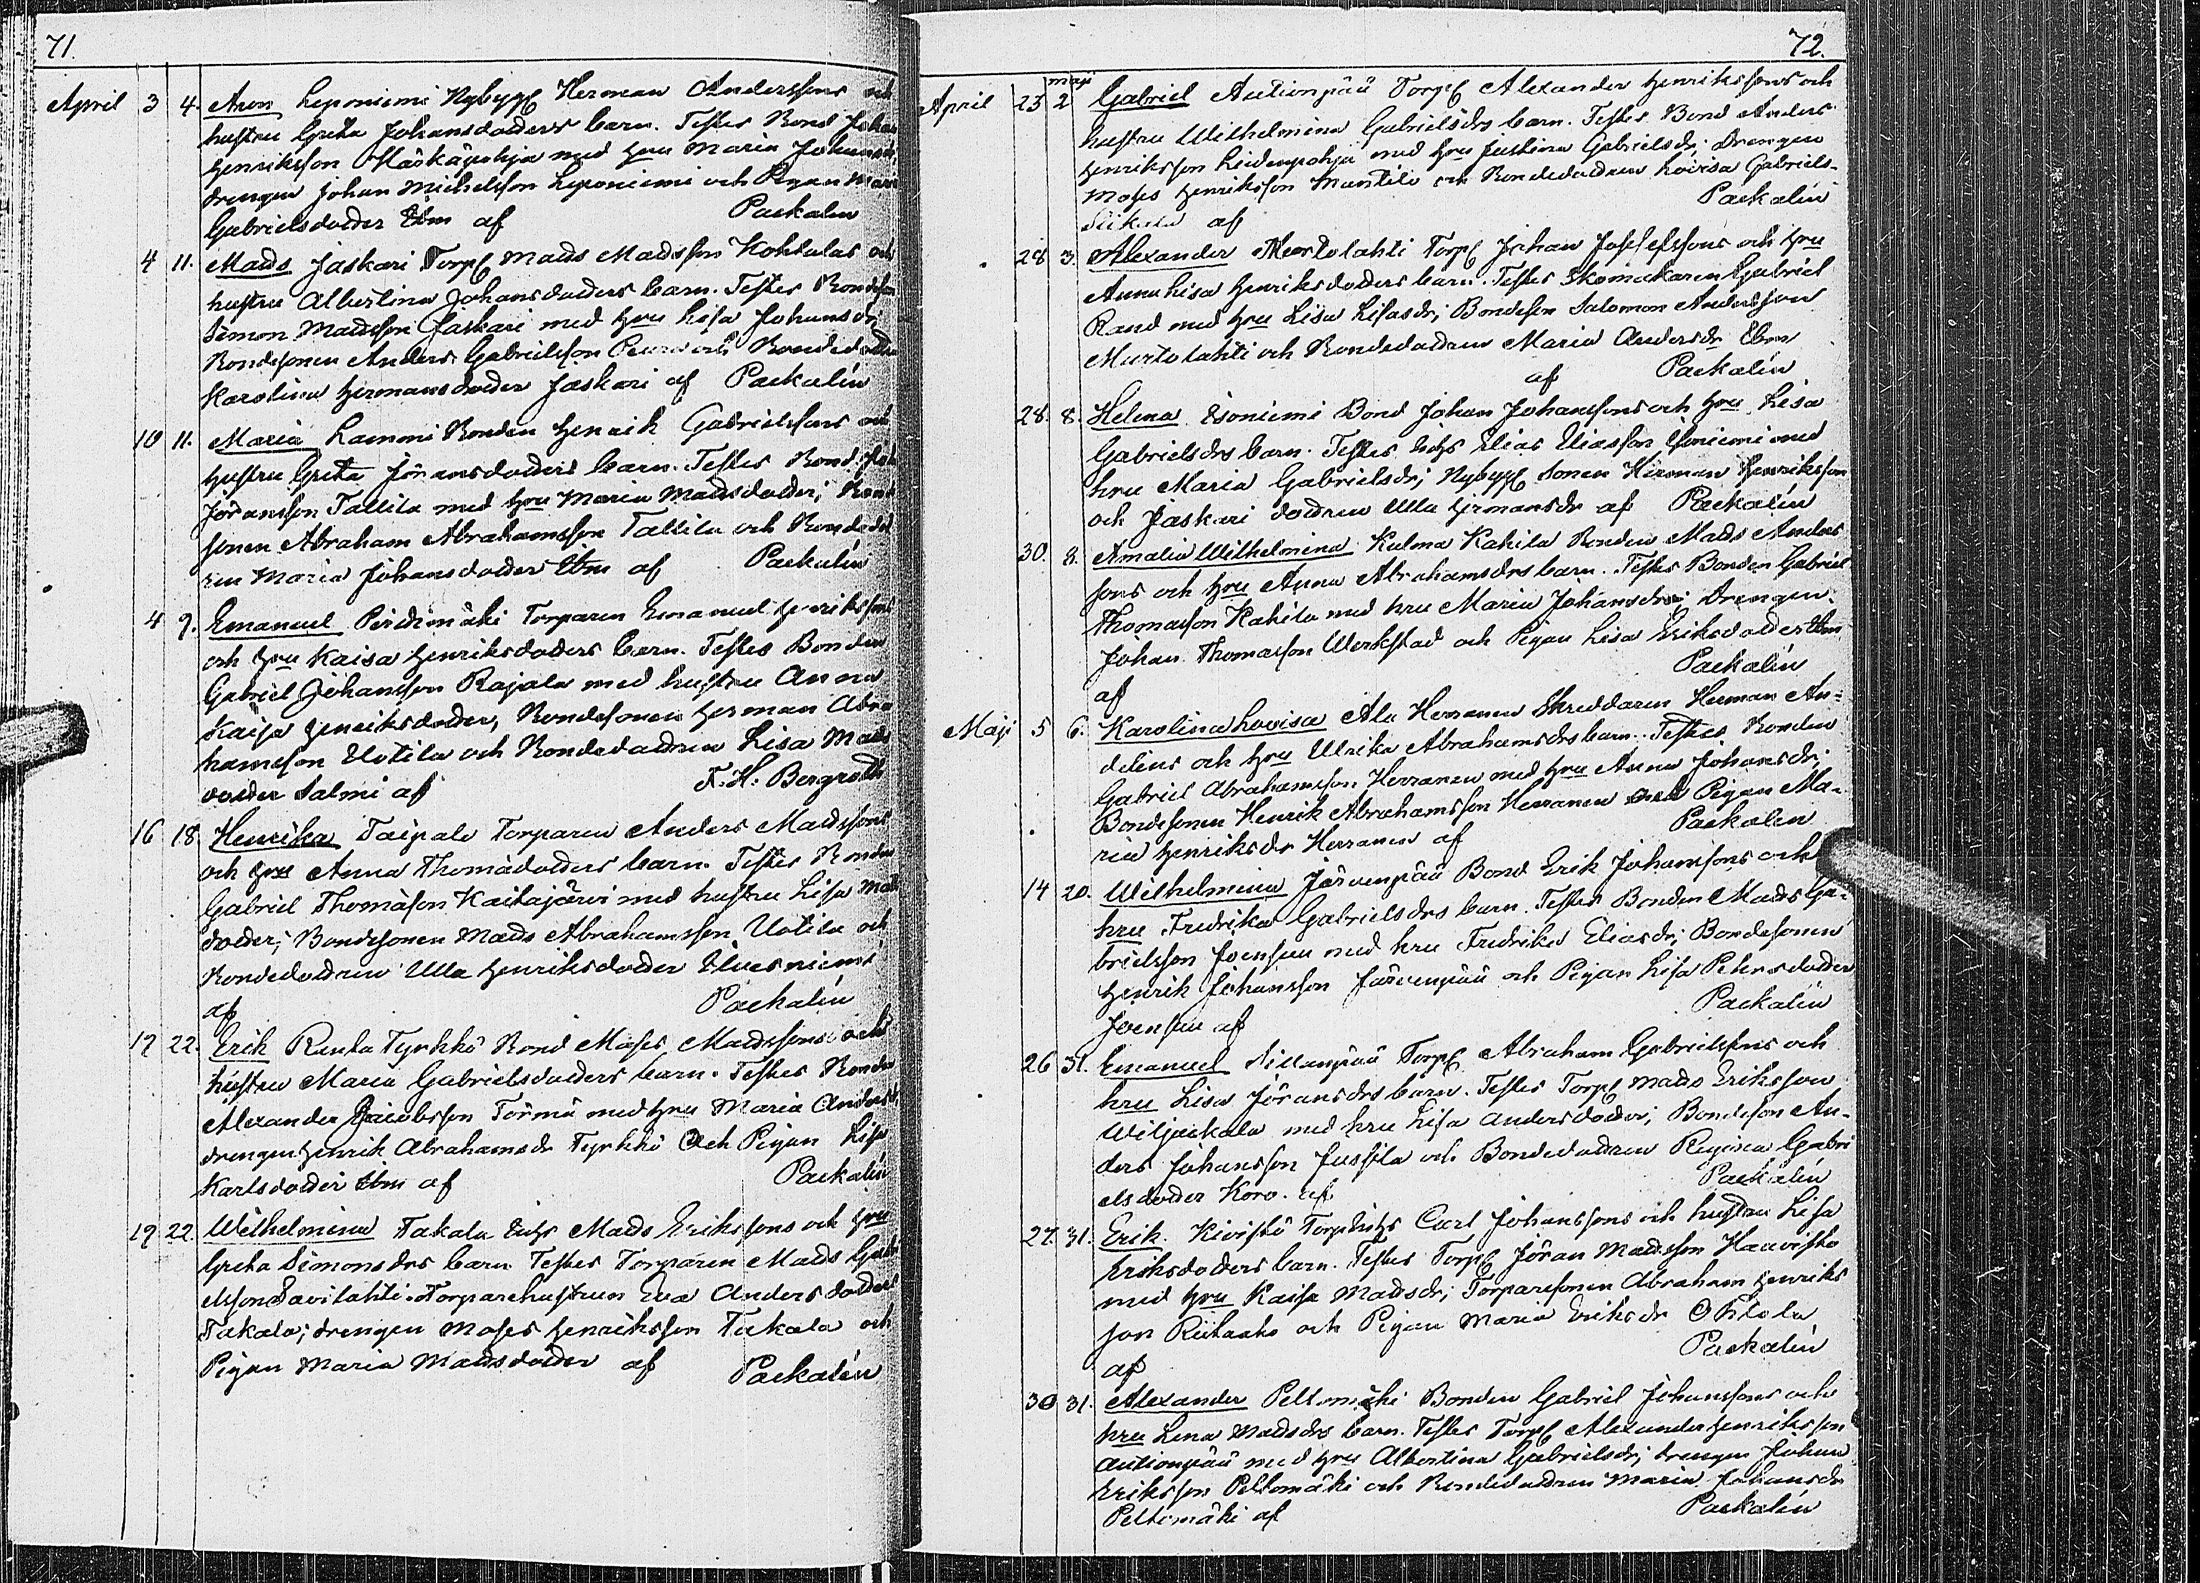 71.
April 3 4. Aron Leponiemi Nybygg Herman Anderssons och
hustru Greta Johansdotters barn. Testes Bond Johan
Henriksson Käskäpohja med Hru Maria Johansdr,
drengen Johan Michelsson Leponiemi och Pigan Maria
Gabrielsdotter Ibm af Paekalén
4 11. Mads Jaskari Torp Mads Madsson Kohtalas och
hustru Albertina Johansdotters barn. Testes Bondeson
Simon Madsson Jaskari med Hru Lisa Johansdr,
Bondesonen Anders Gabrielsson Peura och Bondedottr
Karolina Hermansdotter Jaskari af Paekalén
10 11. Maria Lammi Bonden Henrik Gabrielssons och
hustru Greta Jöransdotters barn. Testes Bond Joh
Jöransson Tallila med Hru Maria Madsdotter; Bonde
sonen Abraham Abrahamsson Tallila och Bondedot
ren Maria Johansdotter Ibm af Paekalén
4 9. Emanuel Perdimäki Torparen Emanuel Henrikssons
och Hru Kaisa Henriksdotters barn. Testes Bonden
Gabriel Johansson Rajala med hustru Anna
Kaisa Henriksdotter, Bondesonen Herman Abra
hamsson Uotila och Bondedottren Lisa Mads
dotter Salmi af F. H. Bergroth
16 18. Henrika Taipale Torparen Anders Madssons
och Hru Anna Thomädotters barn. Testes Bonden
Gabriel Thomäson Kaitajärvi med hustru Lisa Mats
dotter; Bondesonen Mads Abrahamsson Uotila och
Bondedottren Ulla Henriksdotter Elvesniemi
af Paekalén
19 22. Erik Ranta Tyrkkö Bond Moses Madssons och
hustru Maria Gabrielsdotters barn. Testes Bonden
Alexander Jacobsson Törmä med Hru Maria Andersdr,
drengen Henrik Abrahamsdr Tyrkkö Och Pigan Lisa
Karlsdotter Ibm af Paekalén
19 22. Wilhelmina Takala Inhs Mads Erikssons och Hru
Greta Simonsdrs barn Testes Torparen Mads Gabri
elsson Savilahti. Torparehustrun Eva Andersdotter
Takala; drengen Moses Henriksson Takala och
Pigan Maria Madsdotter af Paekalén
72.
April 25 maji 2 Gabriel Autionpää Torp Alexander Henrikssons och
hustru Wilhelmina Gabrielsdrs barn. Testes Bond Anders
Henriksson Leidenpohja med Hru Justina Gabrielsdr; Drengen
Moses Henriksson Mantila och Bondedottren Lovisa Gabriels-
Siikala af Paekalén
28 3. Alexander Murtolahti Torp Johan Josefssons och Hru
Anna Lisa Henriksdotters barn. Testes Skomakaren Gabriel
Rand med Hru Lisa Lisasdr; Bondeson Salomon Andersson
Murtolahti och Bondedottren Maria Andersdr Ibm
af Paekalén
28. 8. Helena Isoniemi Bond Johan Johanssons och Hru Lisa
Gabrielsdrs barn. Testes Inhs Elias Eliasson Isoniemi med
hru Maria Gabrielsdr; Nybygg Sonen Herman Henriksson
och Jaskari dottren Ulla Hermansdr af Paekalén
30. 8. Amalia Wilhelmina Kulma Kahila Bonden Mads Anders
sons och Hru Anna Abrahamsdrs barn. Testes Bonden Gabriel
Thomasson Kahila med hru Maria Johansdr; Drengen
Johan Thomasson Werkstad och Pigan Lisa Eriksdotter Ibm
af Paekalén
Maji 5 6. Karolina Lovisa Ala Herranen Skreddaren Herman An-
delins och Hru Ulrika Abrahamsdrs barn. Testes Bonden
Gabriel Abrahamsson Herranen med Hru Anna Johansdr;
Bondesonen Henrik Abrahamsson Herranen och Pigan Ma-
ria Henriksdr Herranen af Paekalén
14 20. Wilhelmina Järvenpää Bond Erik Johanssons och
hru Fredrika Gabrielsdrs barn. Testes Bonden Mads Ga-
brielsson Joensuu med hru Fredrika Eliasdr; Bondesonen
Henrik Johansson Järvenpää och Pigan Lisa Petersdotter
Joensuu af Paekalén
26 31. Emanuel Sillanpää Torp Abraham Gabrielssons och
hru Lisa Jöransdrs barn. Testes Torp Mads Eriksson
Wiljackala med hru Lisa Andersdotter; Bondeson An-
ders Johansson Jussila och Bondedottren Regina Gabri
elsdotter Koro. af Paekalén
27. 31. Erik. Kivistö Torp Inhs Carl Johanssons och hustru Lisa
Eriksdotters barn. Testes Torp Jöran Madsson Haavisto
med Hru Kaisa Madsdr; Torparesonen Abraham Henriks
son Riihaho och Pigan Maria Eriksdr Ohtola
af Paekalén
30 31. Alexander Peltomäki Bonden Gabriel Johanssons och
hru Lena Madsdrs barn. Testes Torp Alexander Henriksson
Autionpää med Hru Albertina Gabrielsdr; drengen Johan
Eriksson Peltomäki och Bondedottren Maria Johansdr
Peltomäki af Paekalén